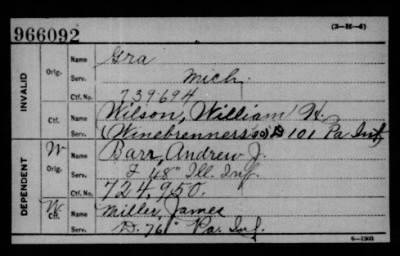 966092
(3-H-4)
INVALID
Orig.
Name Gra
Serv. Mich.
Ctf. No. 739694
Ctf.
Name Wilson, William H.
Serv. (Winebrenner's Co) D 101 Pa Inf
DEPENDENT
W
Orig.
Name Barr, Andrew J.
Serv. F 48" Ill. Inf.
Ctf. No. 724,950.
W
Ctf.
Name Miller, James
Serv. D. 76" Pa. Inf.
6-1303